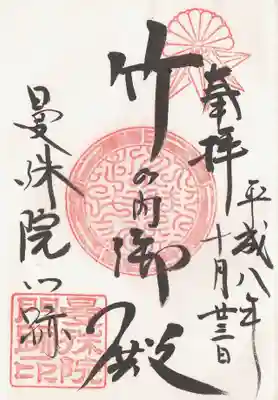 奉拝
平成八年
十月廿三日
竹の内御殿
曼殊院門跡